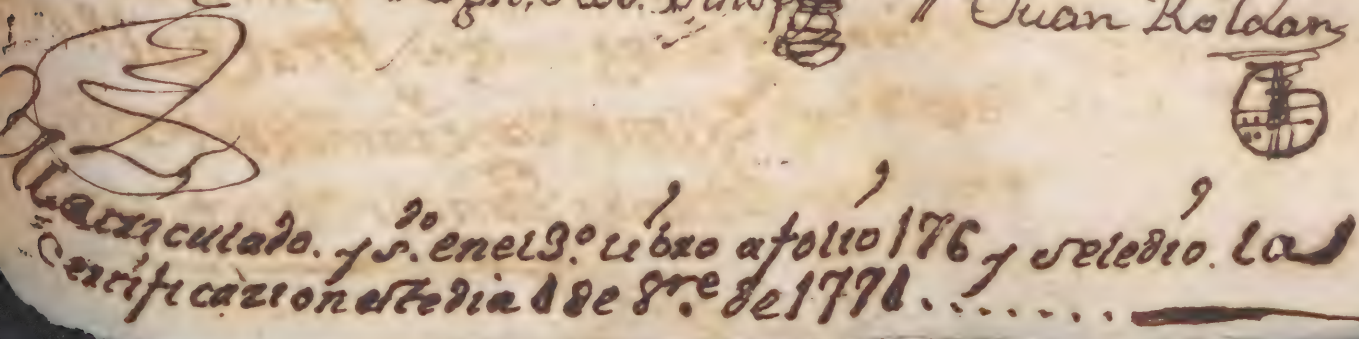 Juan Roldan
Matriculado. y s.do en el 3.º libro a folio 176 y se le dio. la
Certificazion este dia 1 de 8.re de 1771.......